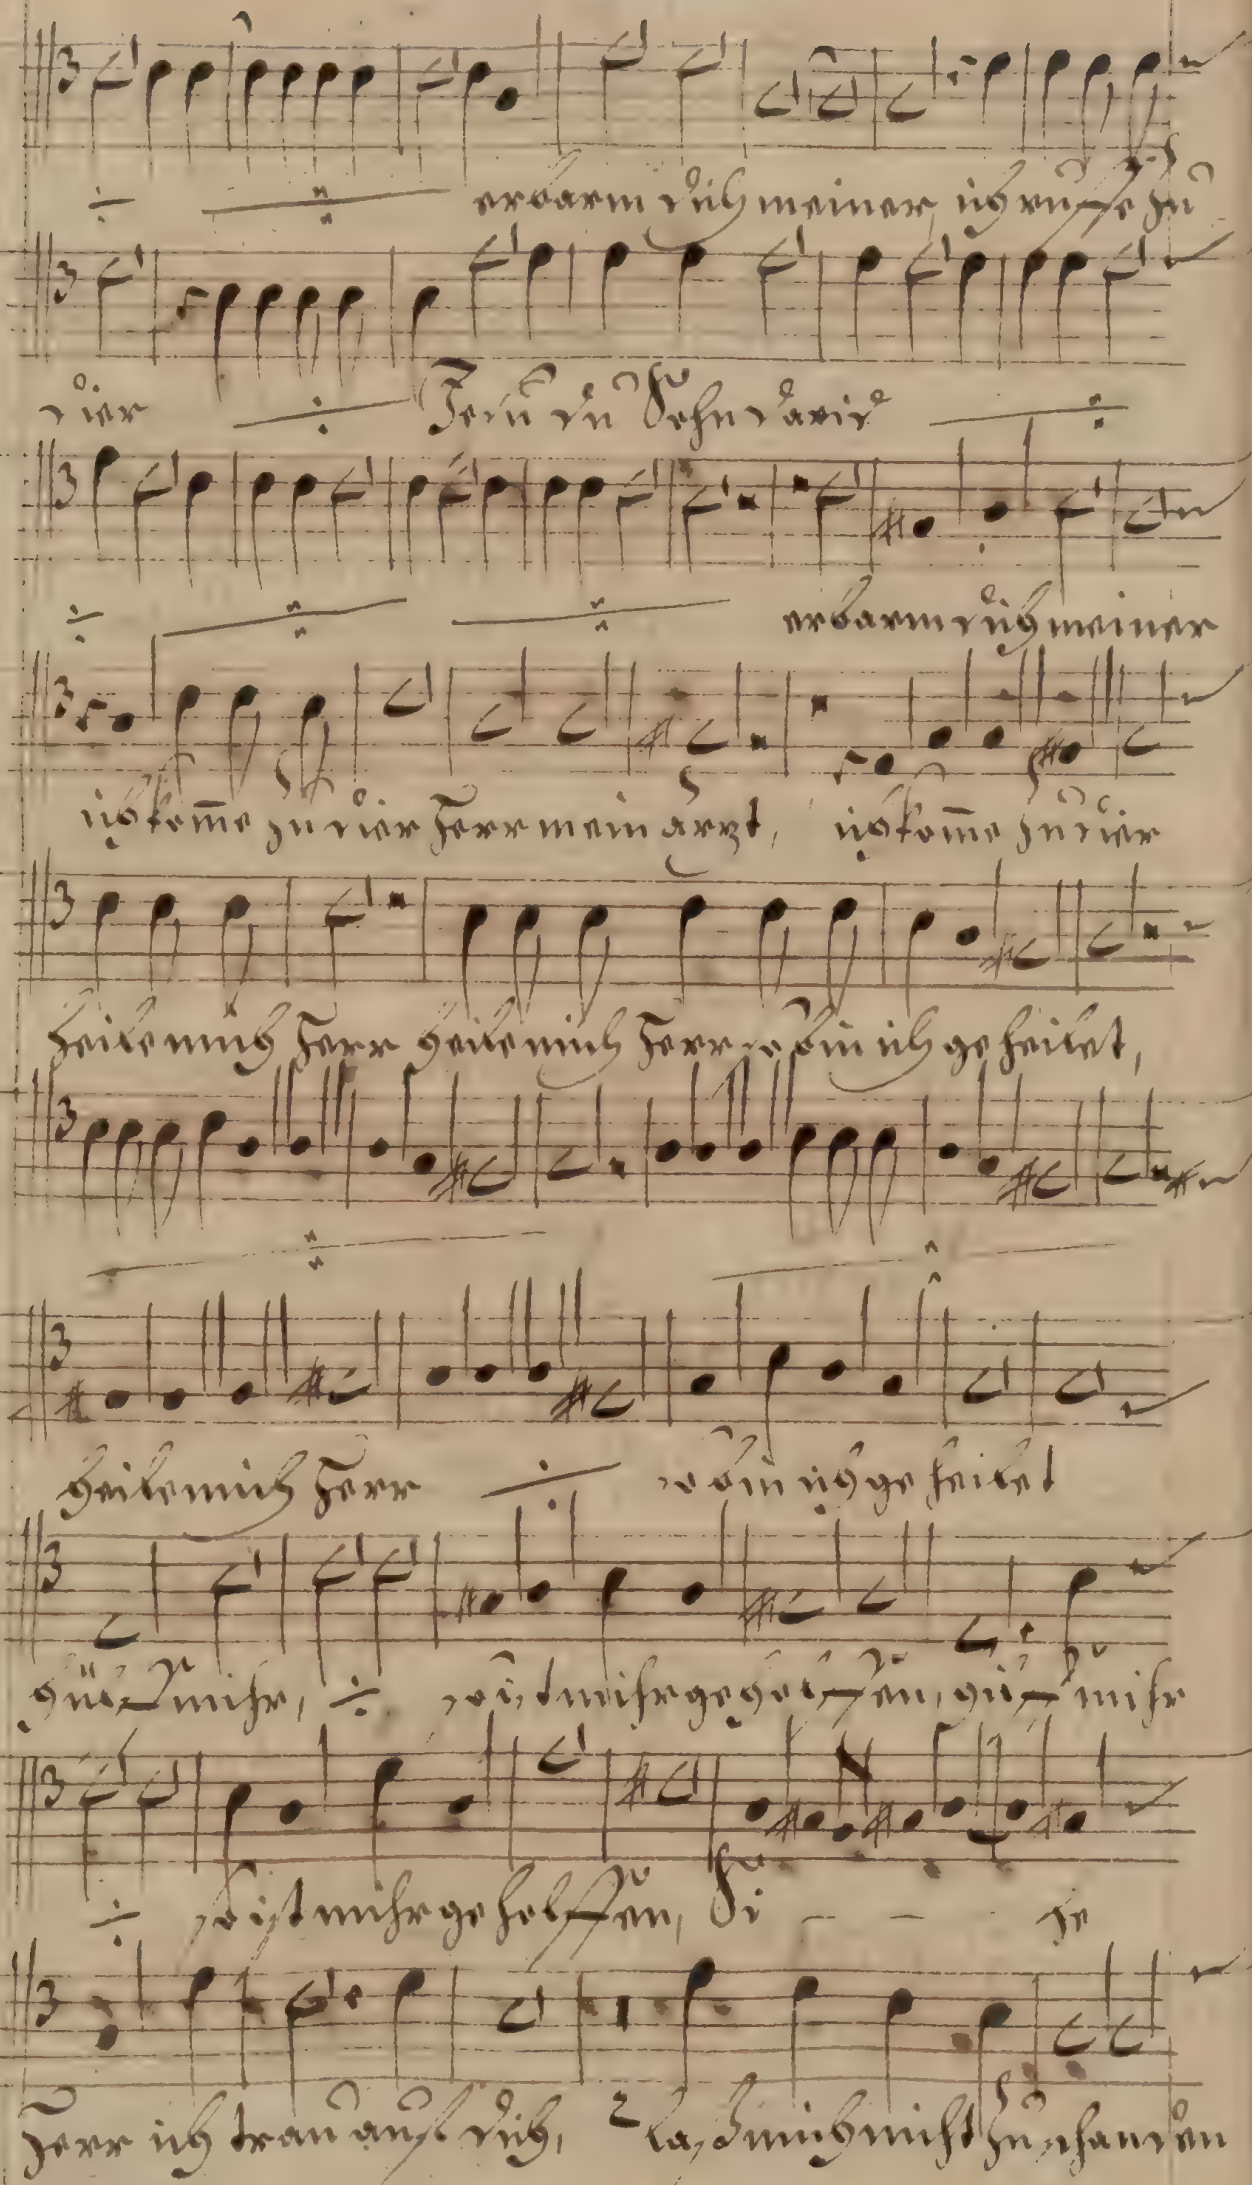 ÷ ÷ erbarm dich meiner, ich ruffe zu
dier ÷ Jesu du Sohn david ÷
÷ ÷ ÷ erbarm dich meiner
ich kom̄e zu dier Herr mein arzt, ich kom̄e zu dier
heile mich Herr heile mich Herr so bin ich geheilet,
÷ ÷
heile mich Herr ÷ so bin ich geheilet
hülff mihr, ÷ so ist mihr geholffen, hülff mihr
÷ so ist mihr geholffen, Si - - he
Herr ich trau auff dich, 2 lass mich nicht zu schanden